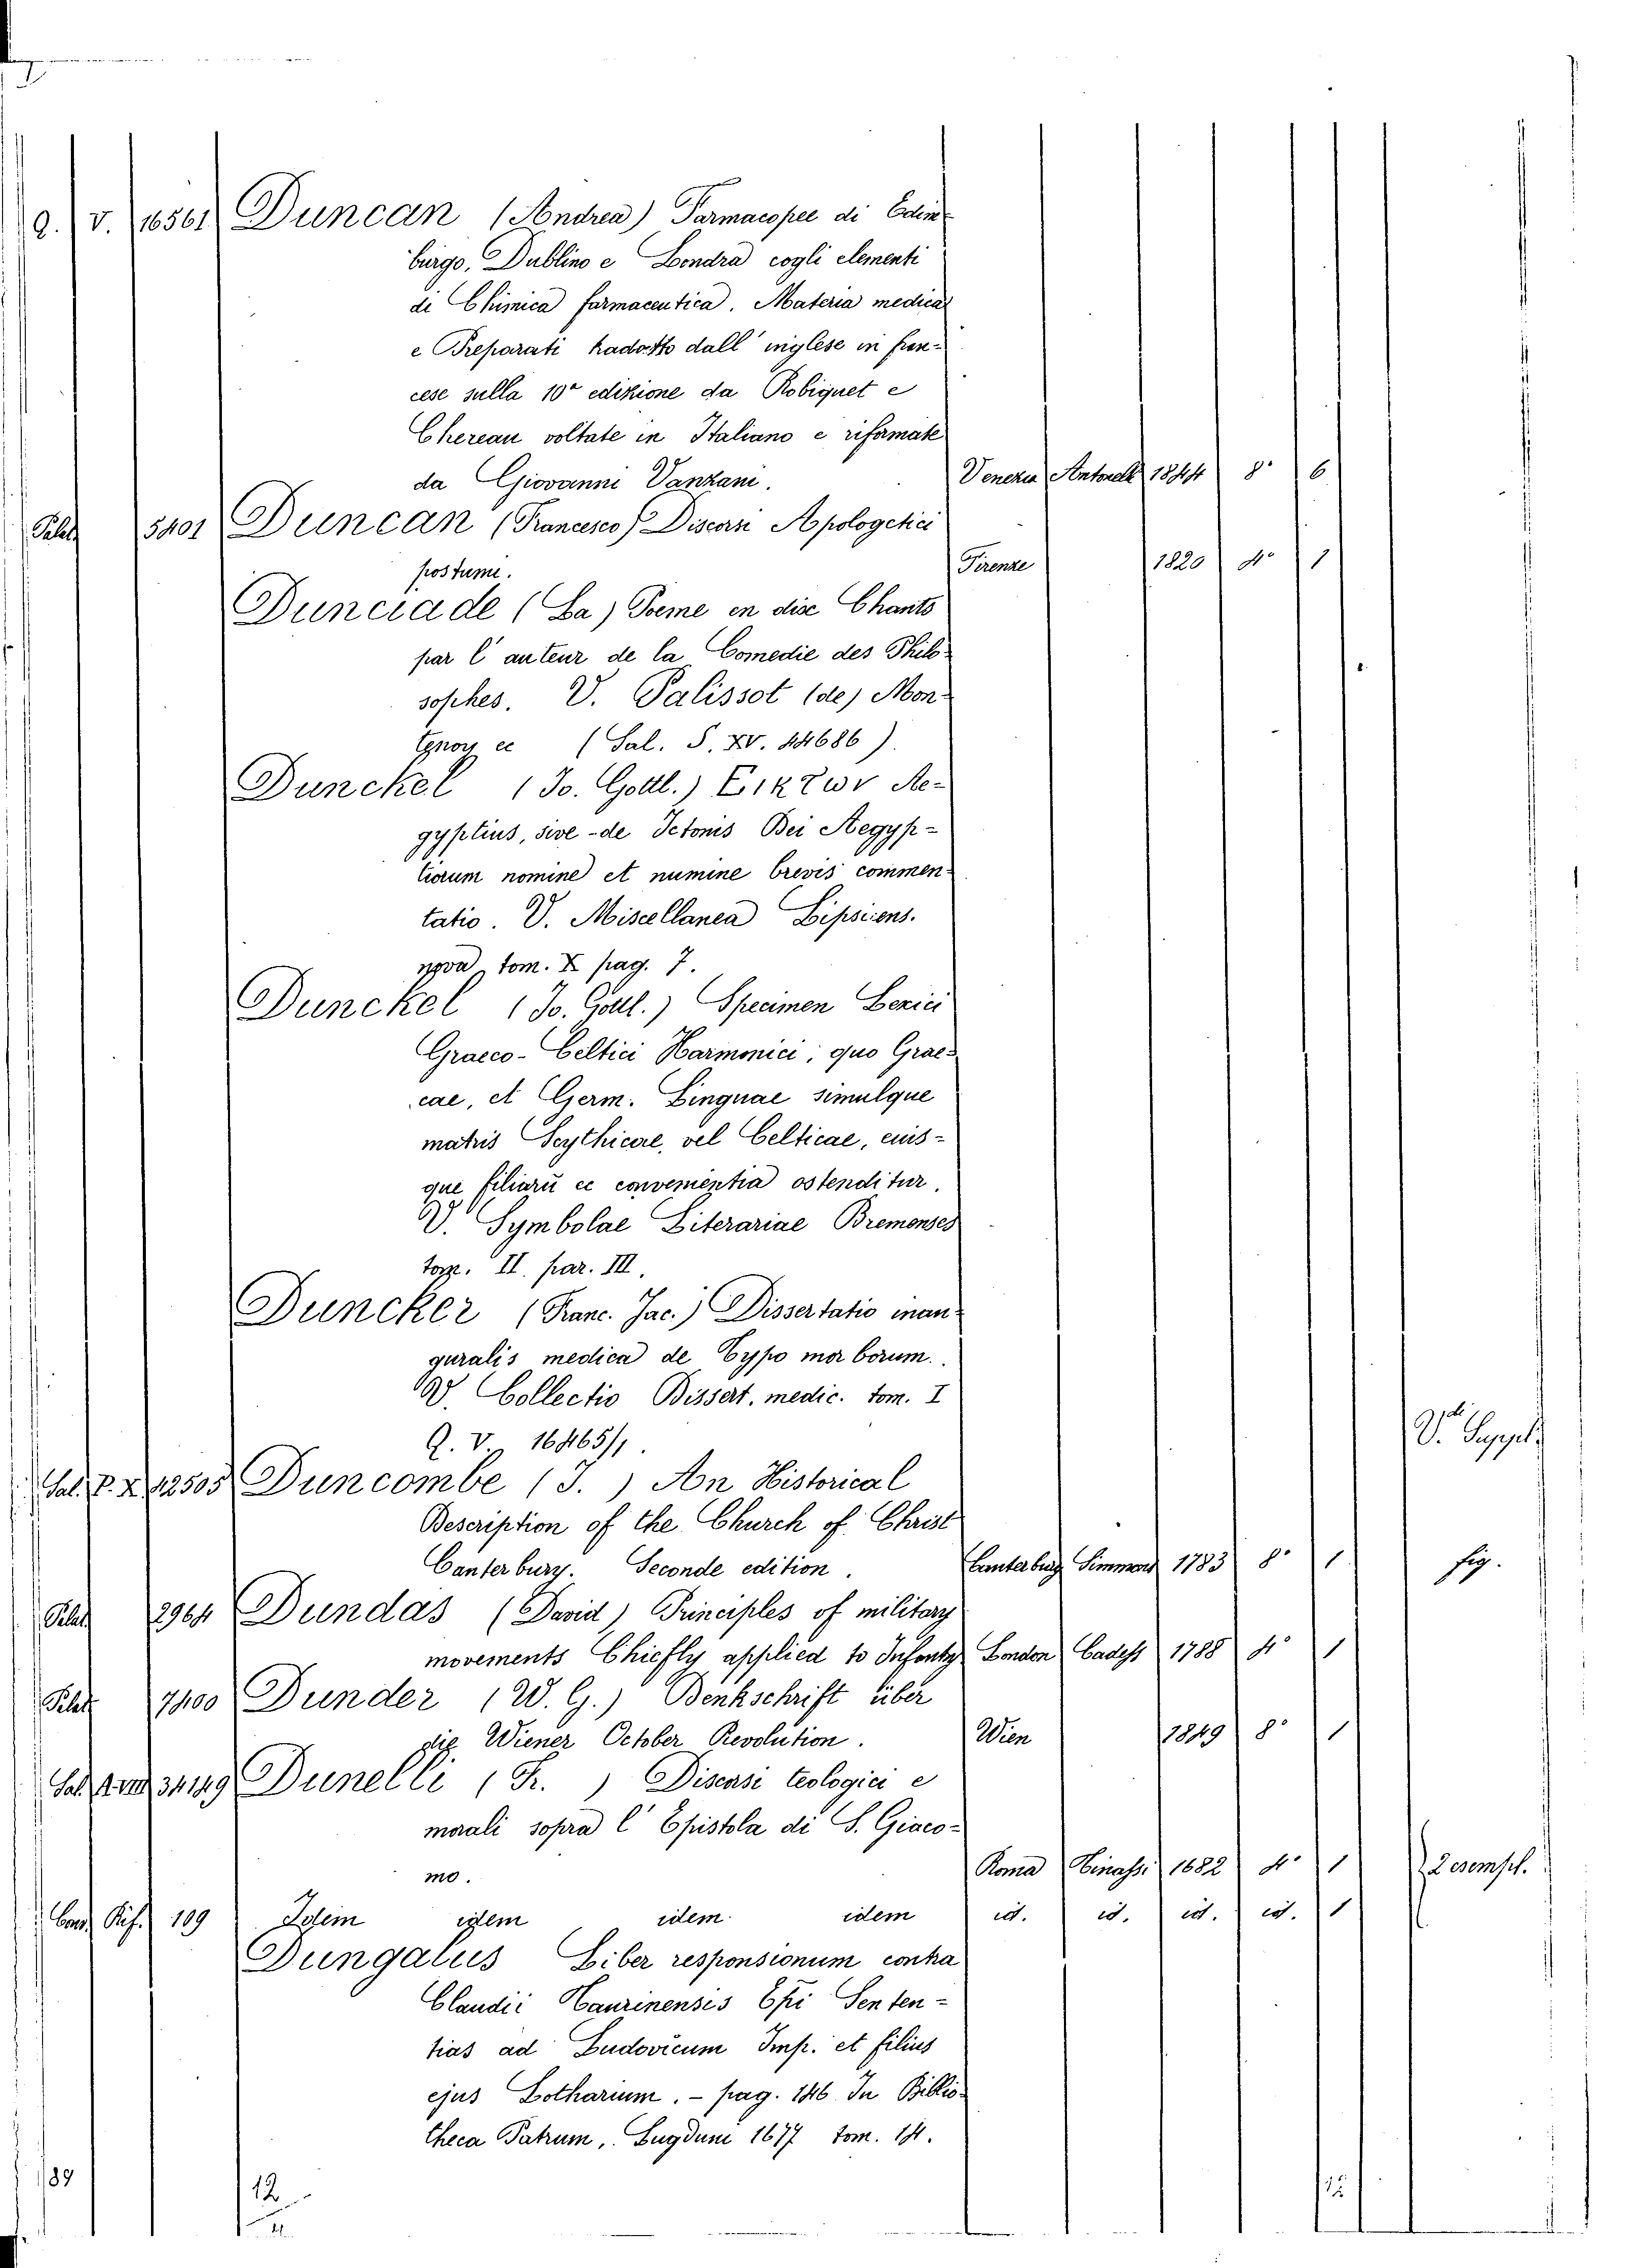 Q. V. 16561 Duncan (Andrea) Farmacopee di Edim-
burgo, Dublino e Londra cogli elementi
di Chimica farmaceutica. Materia medica
e Preparati tradotto dall' inglese in fran-
cese sulla 10ª edizione da Robiquet e
Chereau voltate in Italiano e riformate
da Giovanni Vanzani. Venezia Antonelli 1844 8° 6
Palat. 5401 Duncan (Francesco) Discorsi Apologetici
postumi. Firenze 1820 4° 1
Dunciade (La) Poeme en dix Chants
par l' auteur de la Comedie des Philo-
sophes. V. Palissot (de) Mon-
tenoy ec (Sal. S. XV. 44686).
Dunckel (Jo. Gottl.) Εικτων Ae-
gyptius, sive de Ictonis Dei Aegyp-
tiorum nomine et numine brevis commen-
tatio. V. Miscellanea Lipsiens.
nova, tom. X pag. 7.
Dunckel (Jo. Gottl.) Specimen Lexici
Graeco-Celtici Harmonici; quo Grae-
cae, et Germ. Linguae simulque
matris Scythicae, vel Celticae, eius-
que filiarū ec convenientia ostenditur.
V. Symbolae Literariae Bremenses
tom. II. par. III.
Duncker (Franc. Jac.) Dissertatio inau-
guralis medica de Typo morborum.
V. Collectio Dissert. medic. tom. I
Q. V. 16465/1. V. Suppl.
Sal. P. X 12505 Duncombe (J. ) An Historical
Description of the Church of Christ
Canterbury. Seconde edition. Canterbury Simmons 1783 8° 1 fig.
Palat. 2964 Dundas (David) Principles of military
movements Chiefly applied to Infantry London Cadess 1788 4° 1
Palat. 7400 Dunder (W. G.) Denkschrift über
die Wiener October Revolution. Wien 1849 8° 1
Sal. 34149 Dunelli (Fr. ) Discorsi teologici e
morali sopra l' Epistola di S. Giaco-
mo. Roma Tinassi 1682 4° 1 2 esempl.
Rif. 109 Idem idem idem idem id. id. id. id. 1
Dungalus Liber responsionum contra
Claudii Taurinensis Epi Senten-
tias ad Ludovicum Imp. et filius
ejus Lotharium. - pag. 146 In Biblio-
theca Patrum, Lugduni 1677 tom. 14.
189
12
12